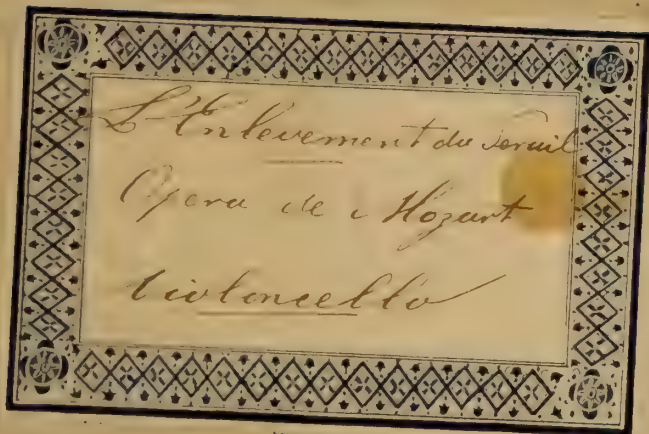 L'Enlevement du serail
Opera de Mozart
Violoncello